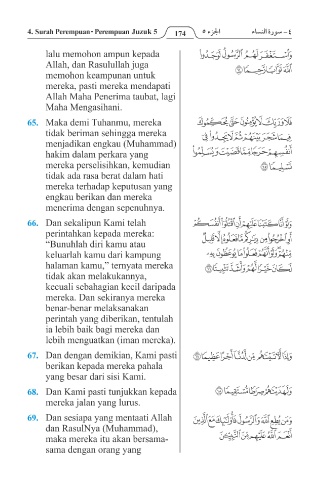 4. Surah Perempuan • Perempuan Juzuk 5
174
الجزء ٥
٤ - سورة النساء
lalu memohon ampun kepada
Allah, dan Rasulullah juga
memohon keampunan untuk
mereka, pasti mereka mendapati
Allah Maha Penerima taubat, lagi
Maha Mengasihani.
65. Maka demi Tuhanmu, mereka
tidak beriman sehingga mereka
menjadikan engkau (Muhammad)
hakim dalam perkara yang
mereka perselisihkan, kemudian
tidak ada rasa berat dalam hati
mereka terhadap keputusan yang
engkau berikan dan mereka
menerima dengan sepenuhnya.
66. Dan sekalipun Kami telah
perintahkan kepada mereka:
“Bunuhlah diri kamu atau
keluarlah kamu dari kampung
halaman kamu,” ternyata mereka
tidak akan melakukannya,
kecuali sebahagian kecil daripada
mereka. Dan sekiranya mereka
benar-benar melaksanakan
perintah yang diberikan, tentulah
ia lebih baik bagi mereka dan
lebih menguatkan (iman mereka).
67. Dan dengan demikian, Kami pasti
berikan kepada mereka pahala
yang besar dari sisi Kami.
68. Dan Kami pasti tunjukkan kepada
mereka jalan yang lurus.
69. Dan sesiapa yang mentaati Allah
dan RasulNya (Muhammad),
maka mereka itu akan bersama-
sama dengan orang yang
وَٱسْتَغْفَرَ لَهُمُ ٱلرَّسُولُ لَوَجَدُوا۟
ٱللَّهَ تَوَّابًا رَّحِيمًا ٦٤
فَلَا وَرَبِّكَ لَا يُؤْمِنُونَ حَتَّىٰ يُحَكِّمُوكَ
فِيمَا شَجَرَ بَيْنَهُمْ ثُمَّ لَا يَجِدُوا۟ فِىٓ
أَنفُسِهِمْ حَرَجًا مِّمَّا قَضَيْتَ وَيُسَلِّمُوا۟
تَسْلِيمًا ٦٥
وَلَوْ أَنَّا كَتَبْنَا عَلَيْهِمْ أَنِ ٱقْتُلُوٓا۟ أَنفُسَكُمْ
أَوِ ٱخْرُجُوا۟ مِن دِيَٰرِكُم مَّا فَعَلُوهُ إِلَّا قَلِيلٌ
مِّنْهُمْ وَلَوْ أَنَّهُمْ فَعَلُوا۟ مَا يُوعَظُونَ بِهِۦ
لَكَانَ خَيْرًا لَّهُمْ وَأَشَدَّ تَثْبِيتًا ٦٦
وَإِذًا لَّءَاتَيْنَٰهُم مِّن لَّدُنَّآ أَجْرًا عَظِيمًا ٦٧
وَلَهَدَيْنَٰهُمْ صِرَٰطًا مُّسْتَقِيمًا ٦٨
وَمَن يُطِعِ ٱللَّهَ وَٱلرَّسُولَ فَأُو۟لَٰٓئِكَ مَعَ ٱلَّذِينَ
أَنْعَمَ ٱللَّهُ عَلَيْهِم مِّنَ ٱلنَّبِيِّـۧنَ